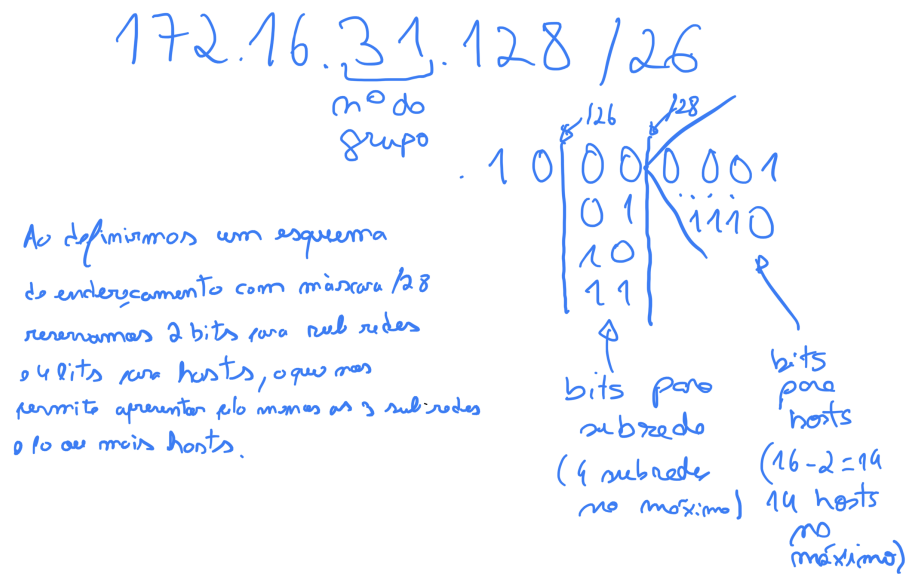 172.16.31.128 /26
nº do
grupo
/26 /28
.10 00 0001
01 1110
10
11
Ao definirmos um esquema
de endereçamento com máscara /28
reservamos 2 bits para sub redes
e 4 bits para hosts, o que nos
permite apresentar pelo menos as 3 sub redes
e 10 ou mais hosts.
bits para
subrede
(4 subredes
no máximo)
bits
para
hosts
(16-2=14
14 hosts
no
máximo)